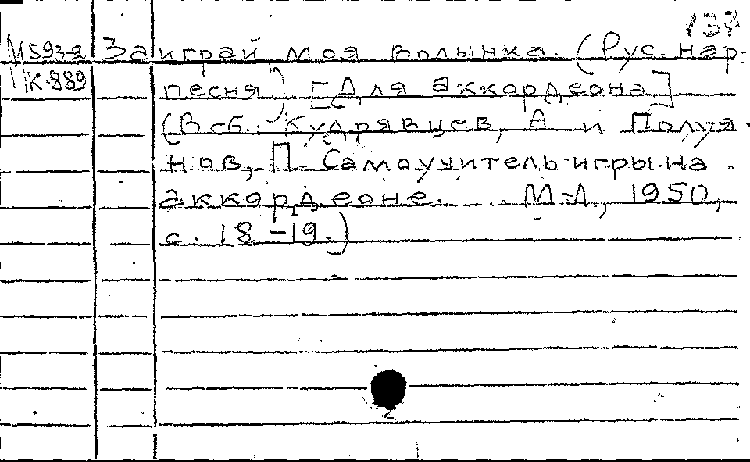 137
М593-2 Заиграй моя волынка. (Рус. нар.
К-889 песня) [Для аккордеона]
(В сб.: Кудрявцев, А и Полуя-
нов, П. Самоучитель игры на
аккордеоне. М-Л, 1950,
с. 18-19.)